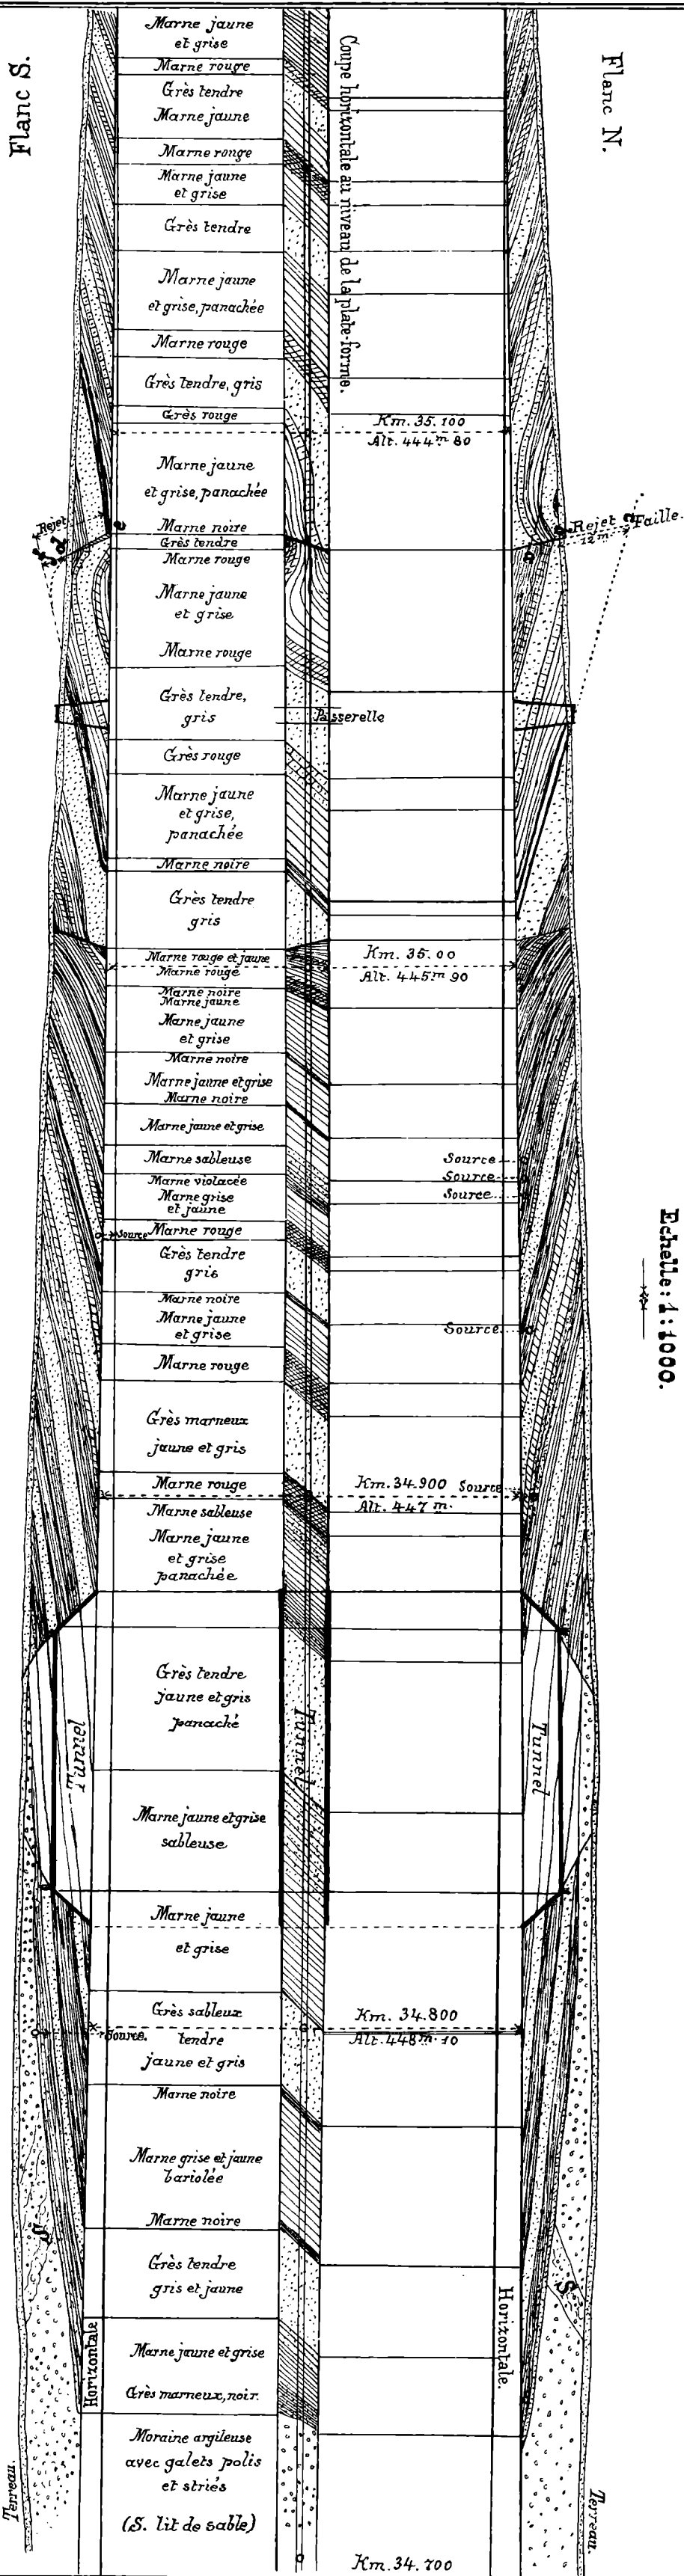 Flanc S.
Flanc N.
Coupe horizontale au niveau de la plate-forme.
Echelle: 1:1000.
Marne jaune
et grise
Marne rouge
Grès tendre
Marne jaune
Marne rouge
Marne jaune
et grise
Grès tendre
Marne jaune
et grise, panachée
Marne rouge
Grès tendre, gris
Grès rouge
Km. 35.100
Alt. 444m 80
Marne jaune
et grise, panachée
Rejet
Marne noire
Rejet
12 m
Faille
Grès tendre
Marne rouge
Marne jaune
et grise
Marne rouge
Grès tendre,
gris
Passerelle
Grès rouge
Marne jaune
et grise,
panachée
Marne noire
Grès tendre
gris
Marne rouge et jaune
Km. 35.00
Marne rouge
Alt. 445m 90
Marne noire
Marne jaune
Marne jaune
et grise
Marne noire
Marne jaune et grise
Marne noire
Marne jaune et grise
Marne sableuse
Source
Source
Marne violacée
Source
Marne grise
et jaune
Source
Marne rouge
Grès tendre
gris
Marne noire
Marne jaune
et grise
Source
Marne rouge
Grès marneux
jaune et gris
Marne rouge
Km. 34.900
Source
Marne sableuse
Alt. 447 m.
Marne jaune
et grise
panachée
Grès tendre
jaune et gris
panaché
Tunnel
Tunnel
Tunnel
Marne jaune et grise
sableuse
Marne jaune
et grise
Grès sableux
Km. 34.800
Source.
tendre
Alt. 448m 10
jaune et gris
Marne noire
Marne grise et jaune
bariolée
Marne noire
S.
S.
Grès tendre
gris et jaune
Horizontale
Horizontale.
Marne jaune et grise
Grès marneux, noir.
Moraine argileuse
avec galets polis
et striés
(S. lit de sable)
Terreau.
Terreau.
Km. 34.700